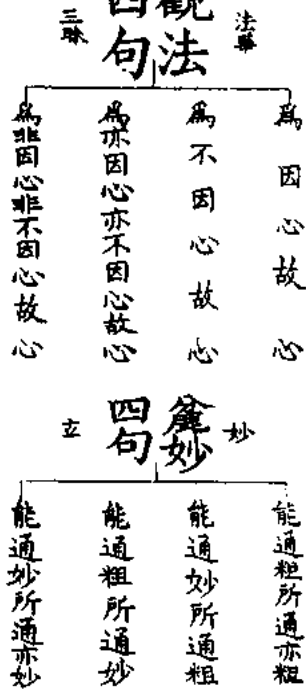 法華
觀法
四句
三昧
爲因心故心
爲不因心故心
爲亦因心亦不因心故心
爲非因心非不因心故心
妙
麁妙
四句
立
能通粗所通亦粗
能通妙所通粗
能通粗所通妙
能通妙所通亦妙